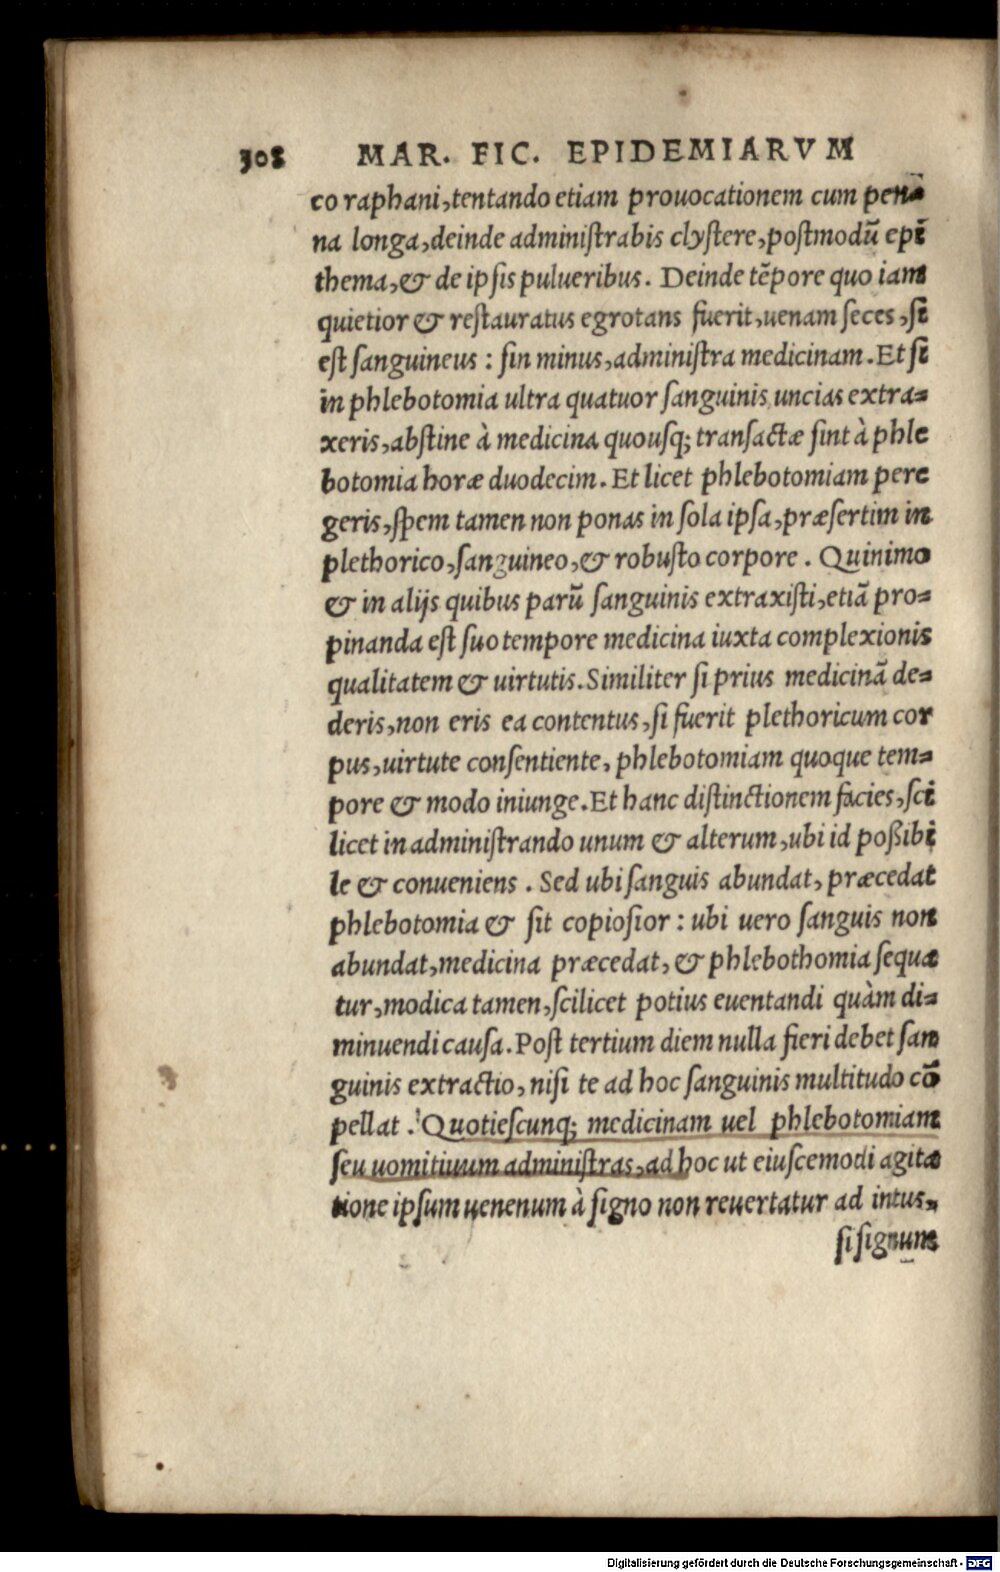 308 MAR. FIC. EPIDEMIARVM
co raphani, tentando etiam prouocationem cum pen⸗
na longa, deinde administrabis clystere, postmodū epi
thema, & de ipsis pulueribus. Deinde tēpore quo iam
quietior & restauratus egrotans fuerit, uenam seces, si
est sanguineus: sin minus, administra medicinam. Et si
in phlebotomia ultra quatuor sanguinis uncias extra⸗
xeris, abstine à medicina quousq; transactæ sint à phle
botomia horæ duodecim. Et licet phlebotomiam pere
geris, spem tamen non ponas in sola ipsa, præsertim in
plethorico, sanguineo, & robusto corpore. Quinimo
& in alijs quibus parū sanguinis extraxisti, etiā pro⸗
pinanda est suo tempore medicina iuxta complexionis
qualitatem & uirtutis. Similiter si prius medicinā de⸗
deris, non eris ea contentus, si fuerit plethoricum cor
pus, uirtute consentiente, phlebotomiam quoque tem⸗
pore & modo iniunge. Et hanc distinctionem facies, sci
licet in administrando unum & alterum, ubi id poßibi
le & conueniens. Sed ubi sanguis abundat, præcedat
phlebotomia & sit copiosior: ubi uero sanguis non
abundat, medicina præcedat, & phlebothomia sequa
tur, modica tamen, scilicet potius euentandi quàm di⸗
minuendi causa. Post tertium diem nulla fieri debet san
guinis extractio, nisi te ad hoc sanguinis multitudo cō
pellat. Quotiescunq; medicinam uel phlebotomiam
seu uomitiuum administras, ad hoc ut eiuscemodi agita
tione ipsum uenenum à signo non reuertatur ad intus,
si signum
Digitalisierung gefördert durch die Deutsche Forschungsgemeinschaft - DFG